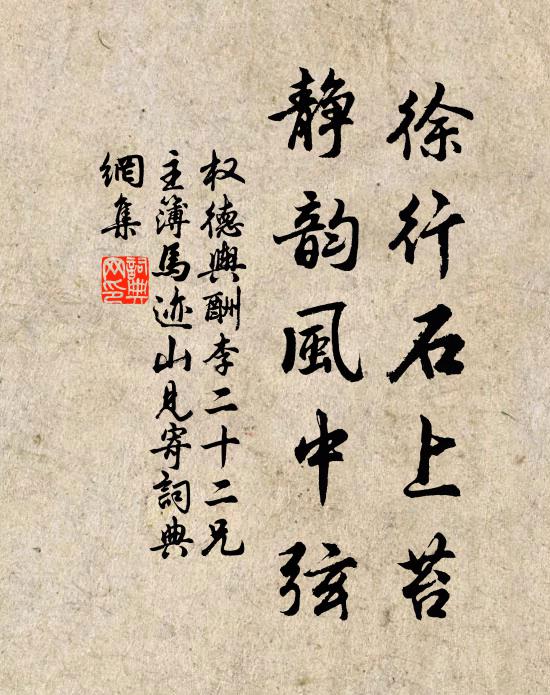 徐行石上苔
静韵風中弦
权德輿酬李二十二兄
主簿馬迹山見寄詞典
網集
詞典
网印